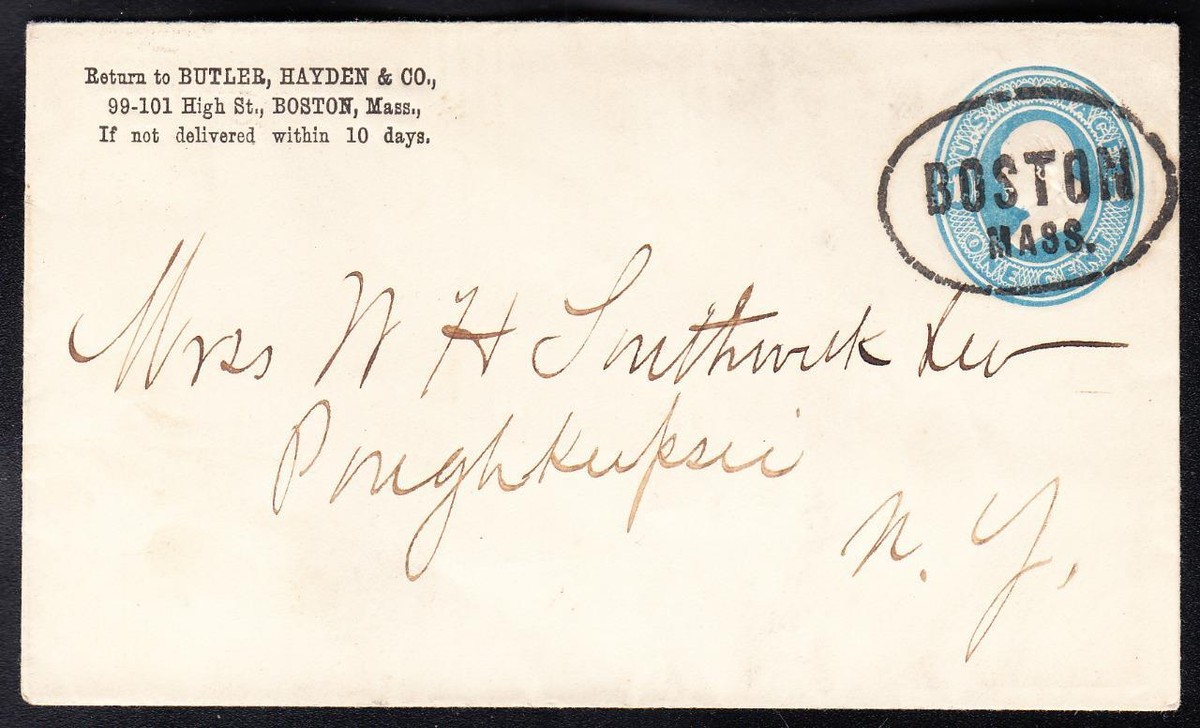 Return to BUTLER, HAYDEN & CO.,
99-101 High St., BOSTON, Mass.,
If not delivered within 10 days.
U.S. POSTAGE
ONE CENT
BOSTON
MASS.
W H Southwick
Poughkeepsie
N. Y.